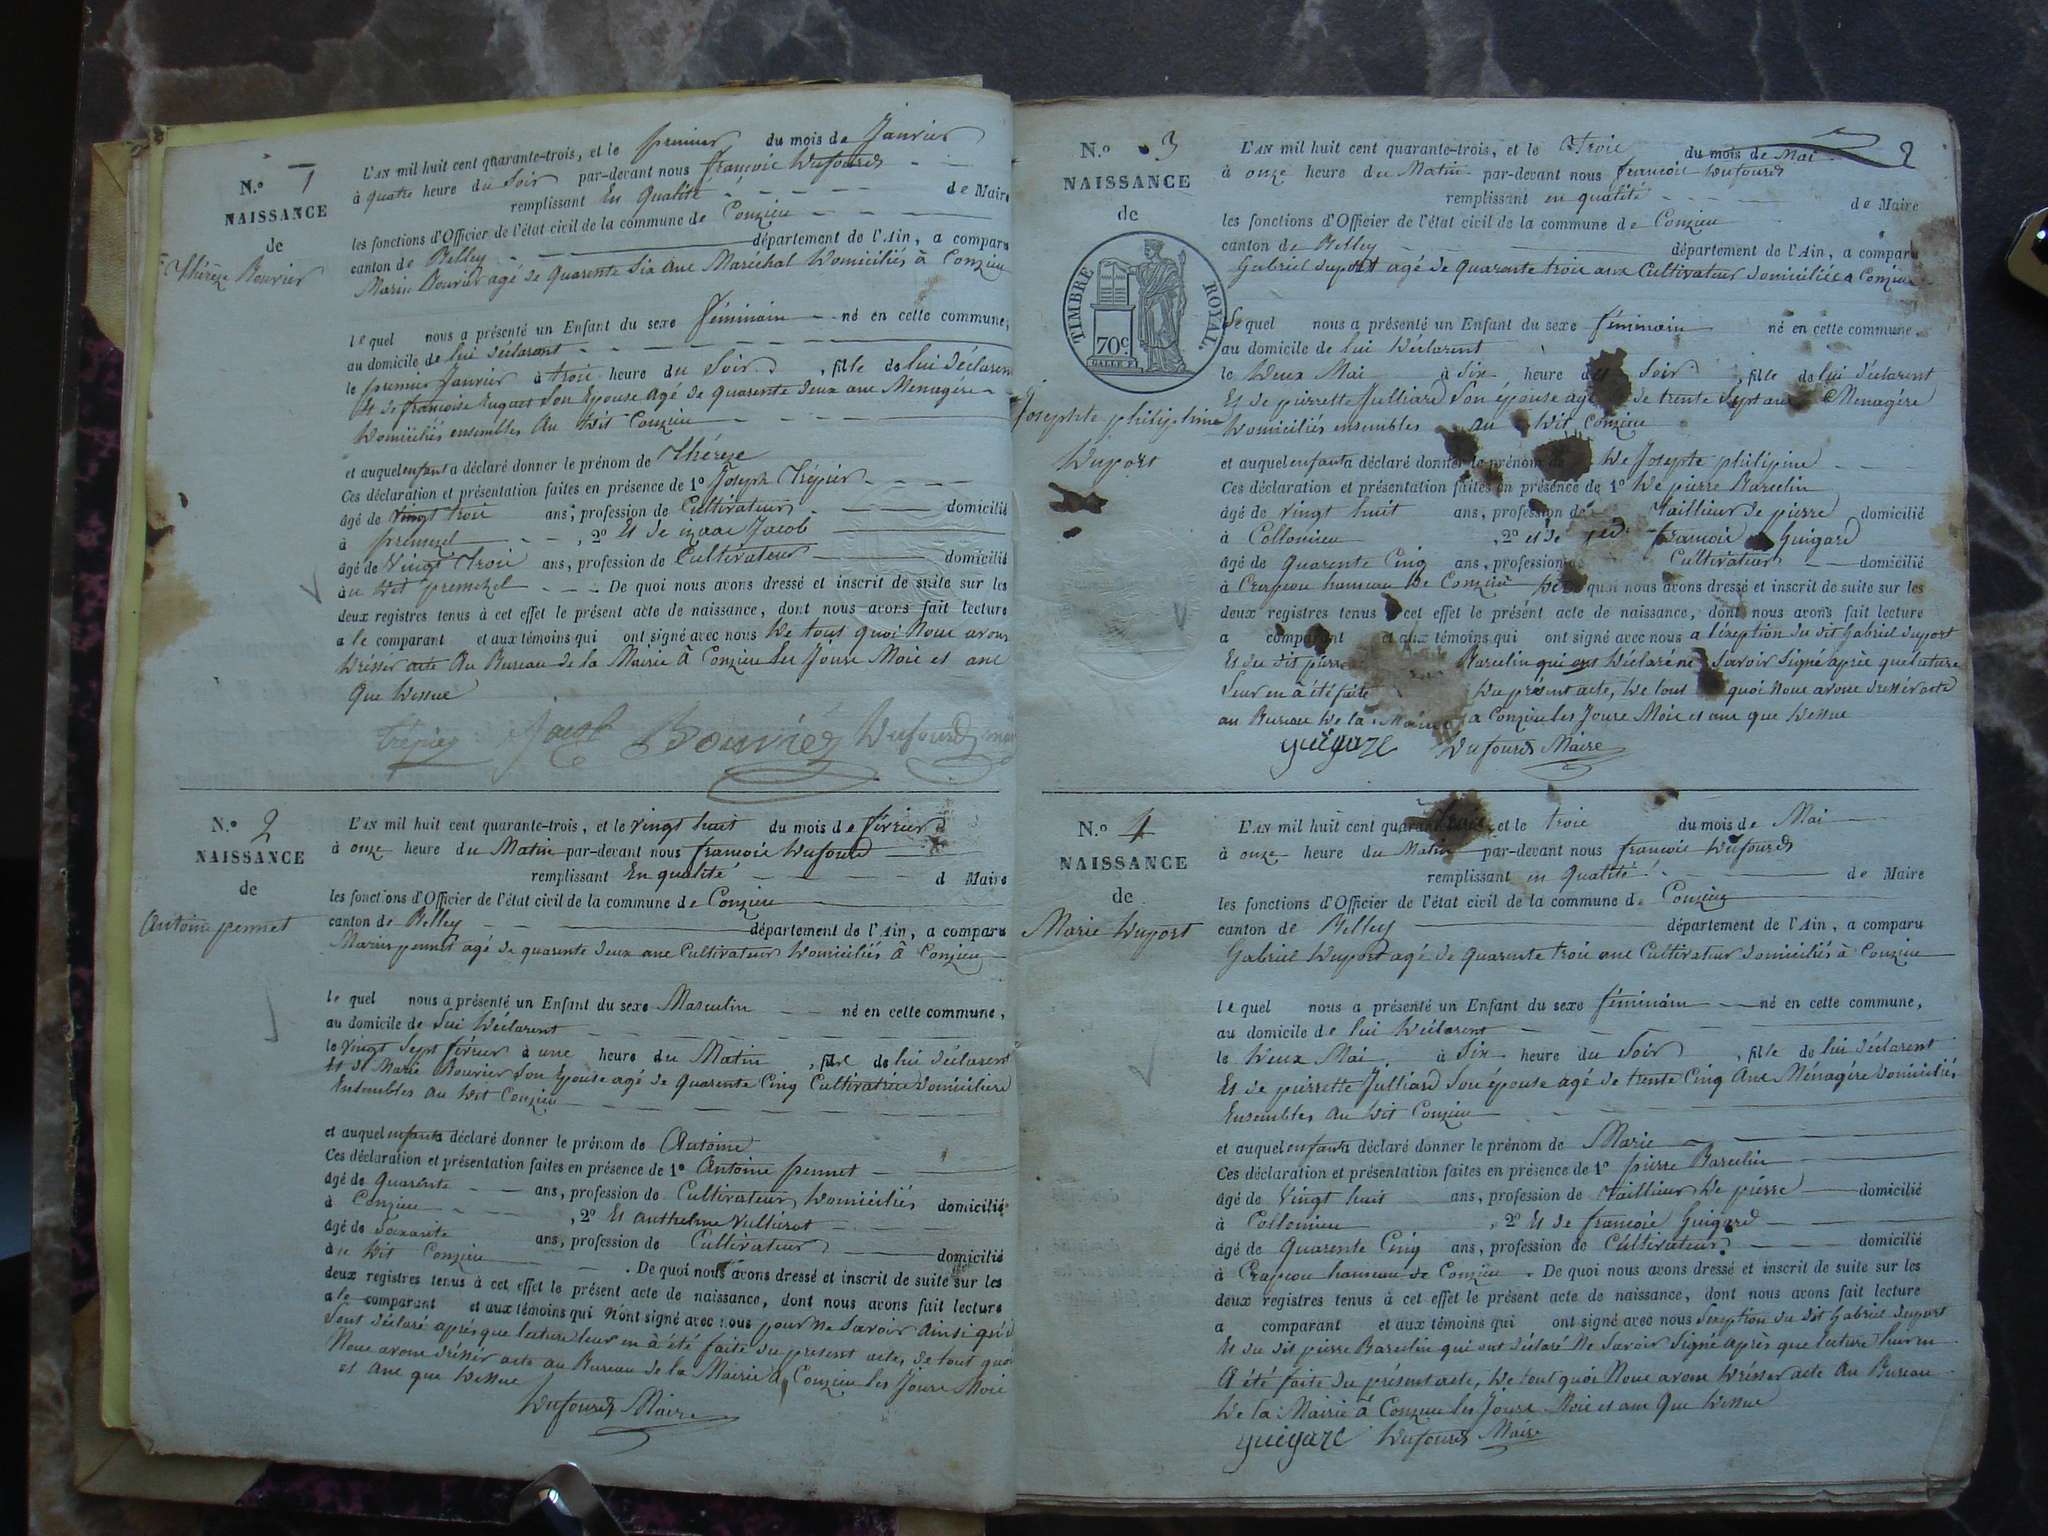 N.º 1
NAISSANCE
de
Thérèze Bouvier
L'AN mil huit cent quarante-trois, et le premier du mois de Janvier
à quatre heure du Soir par-devant nous françois Dufourd
remplissant En Qualité de Maire
les fonctions d'Officier de l'état civil de la commune de Conzieu
canton de Belley département de l'Ain, a comparu
Marin Bouvier agé de quarente Six ans Maréchal Domiciliés à Conzieu
le quel nous a présenté un Enfant du sexe féminain né en cette commune,
au domicile de lui déclarent
le premier Janvier à trois heure du Soir, fille de lui déclarent
Et de françoise huguet Son Epouse agé de quarente deux ans Menagére
Domiciliés ensembles Au Dit Conzieu
et auquel enfant a déclaré donner le prénom de Thérèze
Ces déclaration et présentation faites en présence de 1º Joseph Trépier
âgé de vingt trois ans, profession de Cultivateur domicilié
à premezel, 2º Et de izaac Jacob
âgé de Vingt Trois ans, profession de Cultivateur domicilié
au Dit premezel De quoi nous avons dressé et inscrit de suite sur les
deux registres tenus à cet effet le présent acte de naissance, dont nous avons fait lecture
a le comparant et aux témoins qui ont signé avec nous De tout quoi Nous avons
Drésser acte Au Bureau de la Mairie à Conzieu les Jours Mois et ans
Que Dessus
trépier Jacob Bouvier Dufourd maire
N.º 2
NAISSANCE
de
Antoine pennet
L'AN mil huit cent quarante-trois, et le vingt huit du mois de février
à onze heure du Matin par-devant nous françois Dufourd
remplissant En qualité d Maire
les fonctions d'Officier de l'état civil de la commune de Conzieu
canton de Belley département de l'Ain, a comparu
Marin pennet agé de quarente deux ans Cultivateur Domiciliés à Conzieu
le quel nous a présenté un Enfant du sexe Masculin né en cette commune,
au domicile de Lui Déclarent
le vingt Sept février à une heure du Matin, fils de lui déclarent
Et de Marie Bouvier Son Epouse agé de Quarente Cinq Cultivatrice domiciliere
Ensembles au Dit Conzieu
et auquel enfant a déclaré donner le prénom de Antoine
Ces déclaration et présentation faites en présence de 1º Antoine pennet
âgé de quarente ans, profession de Cultivateur Domiciliés domicilié
à Conzieu, 2º Et anthelme Vulliérot
âgé de Soixante ans, profession de Cultivateur domicilié
au Dit Conzieu. De quoi nous avons dressé et inscrit de suite sur les
deux registres tenus à cet effet le présent acte de naissance, dont nous avons fait lecture
a le comparant et aux témoins qui n'ont signé avec nous pour ne Savoir ainsi qu'il
Sont déclaré après que lecture leur en à été faite du present acte, de tout quoi
Nous avons drésser acte au Bureau de la Mairie à Conzieu les Jours Mois
et ans que Dessus
Dufourd Maire
2
N.º 3
NAISSANCE
de
TIMBRE ROYAL.
70c
Josephte philipine
Duport
L'AN mil huit cent quarante-trois, et le Trois du mois de Mai
à onze heure du Matin par-devant nous françois Dufourd
remplissant en qualité de Maire
les fonctions d'Officier de l'état civil de la commune de Conzieu
canton de Belley département de l'Ain, a comparu
Gabriel duport agé de quarente trois ans Cultivateur domiciliés a Conzieu
Le quel nous a présenté un Enfant du sexe féminain né en cette commune,
au domicile de lui Déclarent
le Deux Mai à Six heure du Soir, fille de lui déclarent
Et de pierrette Julliard Son épouse agé de trente Sept ans Menagére
Domiciliés ensembles au Dit Conzieu
et auquel enfant a déclaré donner le prénom de De Josephte philipine
Ces déclaration et présentation faites en présence de 1º De pierre Barculin
âgé de vingt huit ans, profession de Taillieur de pierre domicilié
à Collomieu, 2º et de françois Guigard
âgé de Quarente Cinq ans, profession de Cultivateur domicilié
à Crapeou hameau De Conzieu De quoi nous avons dressé et inscrit de suite sur les
deux registres tenus à cet effet le présent acte de naissance, dont nous avons fait lecture
a comparant et aux témoins qui ont signé avec nous a l'éxeption du dit Gabriel duport
Et du dit pierre Barculin qui ont Déclaré ne Savoir Signé après que lecture
leur en à été faite Du présent acte, De tout quoi Nous avons dressér acte
au Bureau De la Mairie a Conzieu les Jours Mois et ans que Dessus
guigard Dufourd Maire
N.º 4
NAISSANCE
de
Marie Duport
L'AN mil huit cent quarante-trois, et le trois du mois de Mai
à onze heure du Matin par-devant nous françois Dufourd
remplissant en Qualité de Maire
les fonctions d'Officier de l'état civil de la commune de Conzieu
canton de Belley département de l'Ain, a comparu
Gabriel Duport agé de quarente trois ans Cultivateur domiciliés à Conzieu
le quel nous a présenté un Enfant du sexe féminain né en cette commune,
au domicile de lui Déclarent
le Deux Mai, à Six heure du Soir, fille de lui déclarent
Et de pierrette Julliard Son épouse agé de trente Cinq Ans Ménagére Domiciliés
Ensembles Au Dit Conzieu
et auquel enfant a déclaré donner le prénom de Marie
Ces déclaration et présentation faites en présence de 1º pierre Barculin
âgé de Vingt huit ans, profession de Taillieur De pierre domicilié
à Collomieu, 2º Et de françois Guigard
âgé de Quarente Cinq ans, profession de Cultivateur domicilié
à Crapeou hameau de Conzieu. De quoi nous avons dressé et inscrit de suite sur les
deux registres tenus à cet effet le présent acte de naissance, dont nous avons fait lecture
a comparant et aux témoins qui ont signé avec nous l'exeption du dit Gabriel duport
Et du dit pierre Barculin qui ont déclaré Ne Savoir Signé Après que lecture leur en
A été faite Du présent acte, De tout quoi Nous avons Drésser acte Au Bureau
De la Mairie à Conzieu les Jours Mois et ans Que Dessus
guigard Dufourd Maire